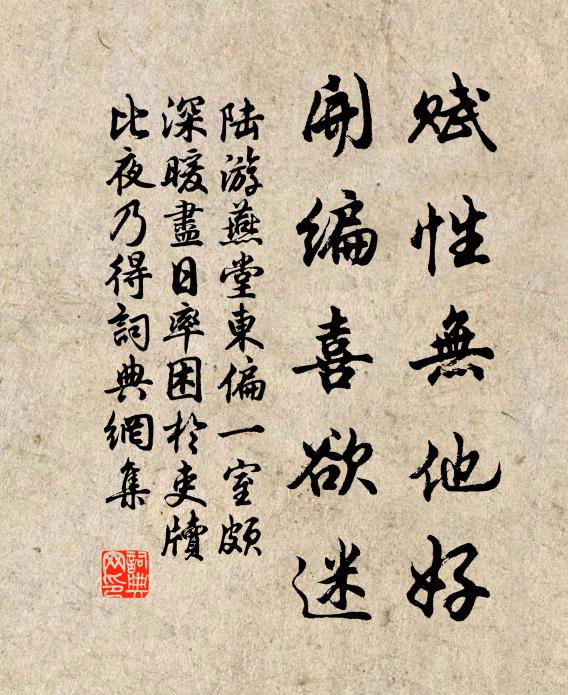 赋性無他好
開编喜欲迷
陆游燕堂東偏一室頗
深暖盡日率困於吏牘
比夜乃得詞典網集
詞典网印